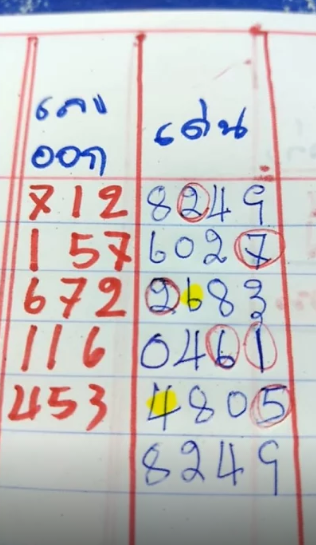 เลข
ออก
เด่น
712 8249
157 6027
672 2683
116 0461
453 4805
8249